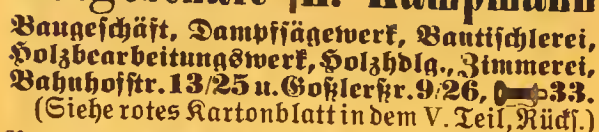 Baugeschäft, Dampfsägewerk, Bautischlerei,
Holzbearbeitungswerk, Holzhdlg., Zimmerei,
Bahnhofstr. 13/25 u. Goßlerstr. 9/26, 33.
(Siehe rotes Kartonblatt in dem V. Teil, Rücks.)